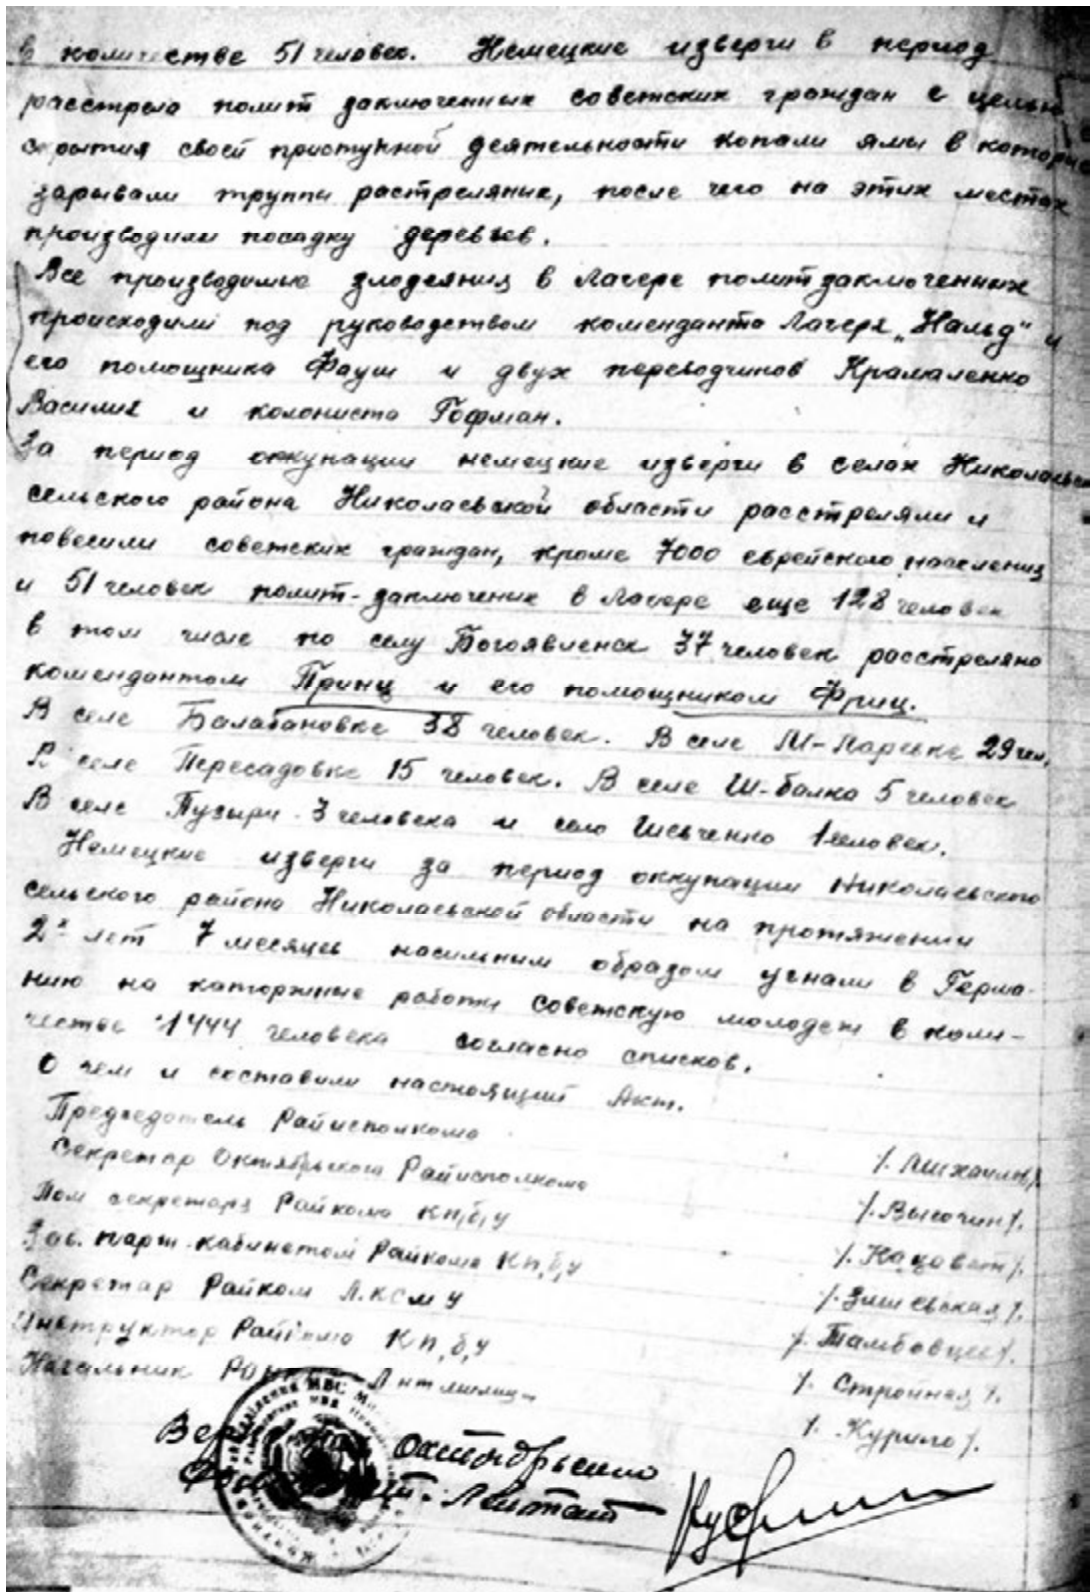 в количестве 51 человек. Немецкие изверги в период
расстрела полит заключенных советских граждан с целью
сокрытия своей приступной деятельности копали ямы в которые
зарывали труппы растреляних, после чего на этих местах
производили посадку деревьев.
Все производимые злодеяния в лагере политзаключенних
происходили под руководством коменданта лагеря „Нальд" и
его помощника Фауш и двух переводчиков Крамаленко
Василия и колониста Гофман.
За период оккупации немецкие изверги в селах Николаевского
сельского района Николаевской области расстреляли и
повесили советских граждан, кроме 7000 еврейского населения
и 51 человек полит-заключених в лагере еще 128 человек
в том числе по селу Богоявленск 37 человек расстреляно
комендантом Принц и его помощником Фриц.
В селе Балабановке 38 человек. В селе М-Ларьевке 29 чел,
В селе Пересадовке 15 человек. В селе Ш-балка 5 человек
В селе Пузыри 3 человека и село Шевченко 1 человек.
Немецкие изверги за период оккупации Николаевского
сельского района Николаевской области на протяжении
2х лет 7 месяцев насильным образом угнали в Герма-
нию на каторжные работы советскую молодеж в коли-
честве 1444 человека согласно списков.
О чем и составили настоящий Акт.
Председатель Райисполкома
Секретар Октябрьского Райисполкома /. Михайлов/.
Пом секретаря Райкома КП,б,У /. Высочин /.
Зав. парт. кабинетом Райкома КП,б,У
Секретар Райком ЛКСМУ
Инструктор Райкома КП,б,У /. Тамбовцев /.
Начальник /. Стройная /.
/. Курило /.
Октябрьского
Лейтенант